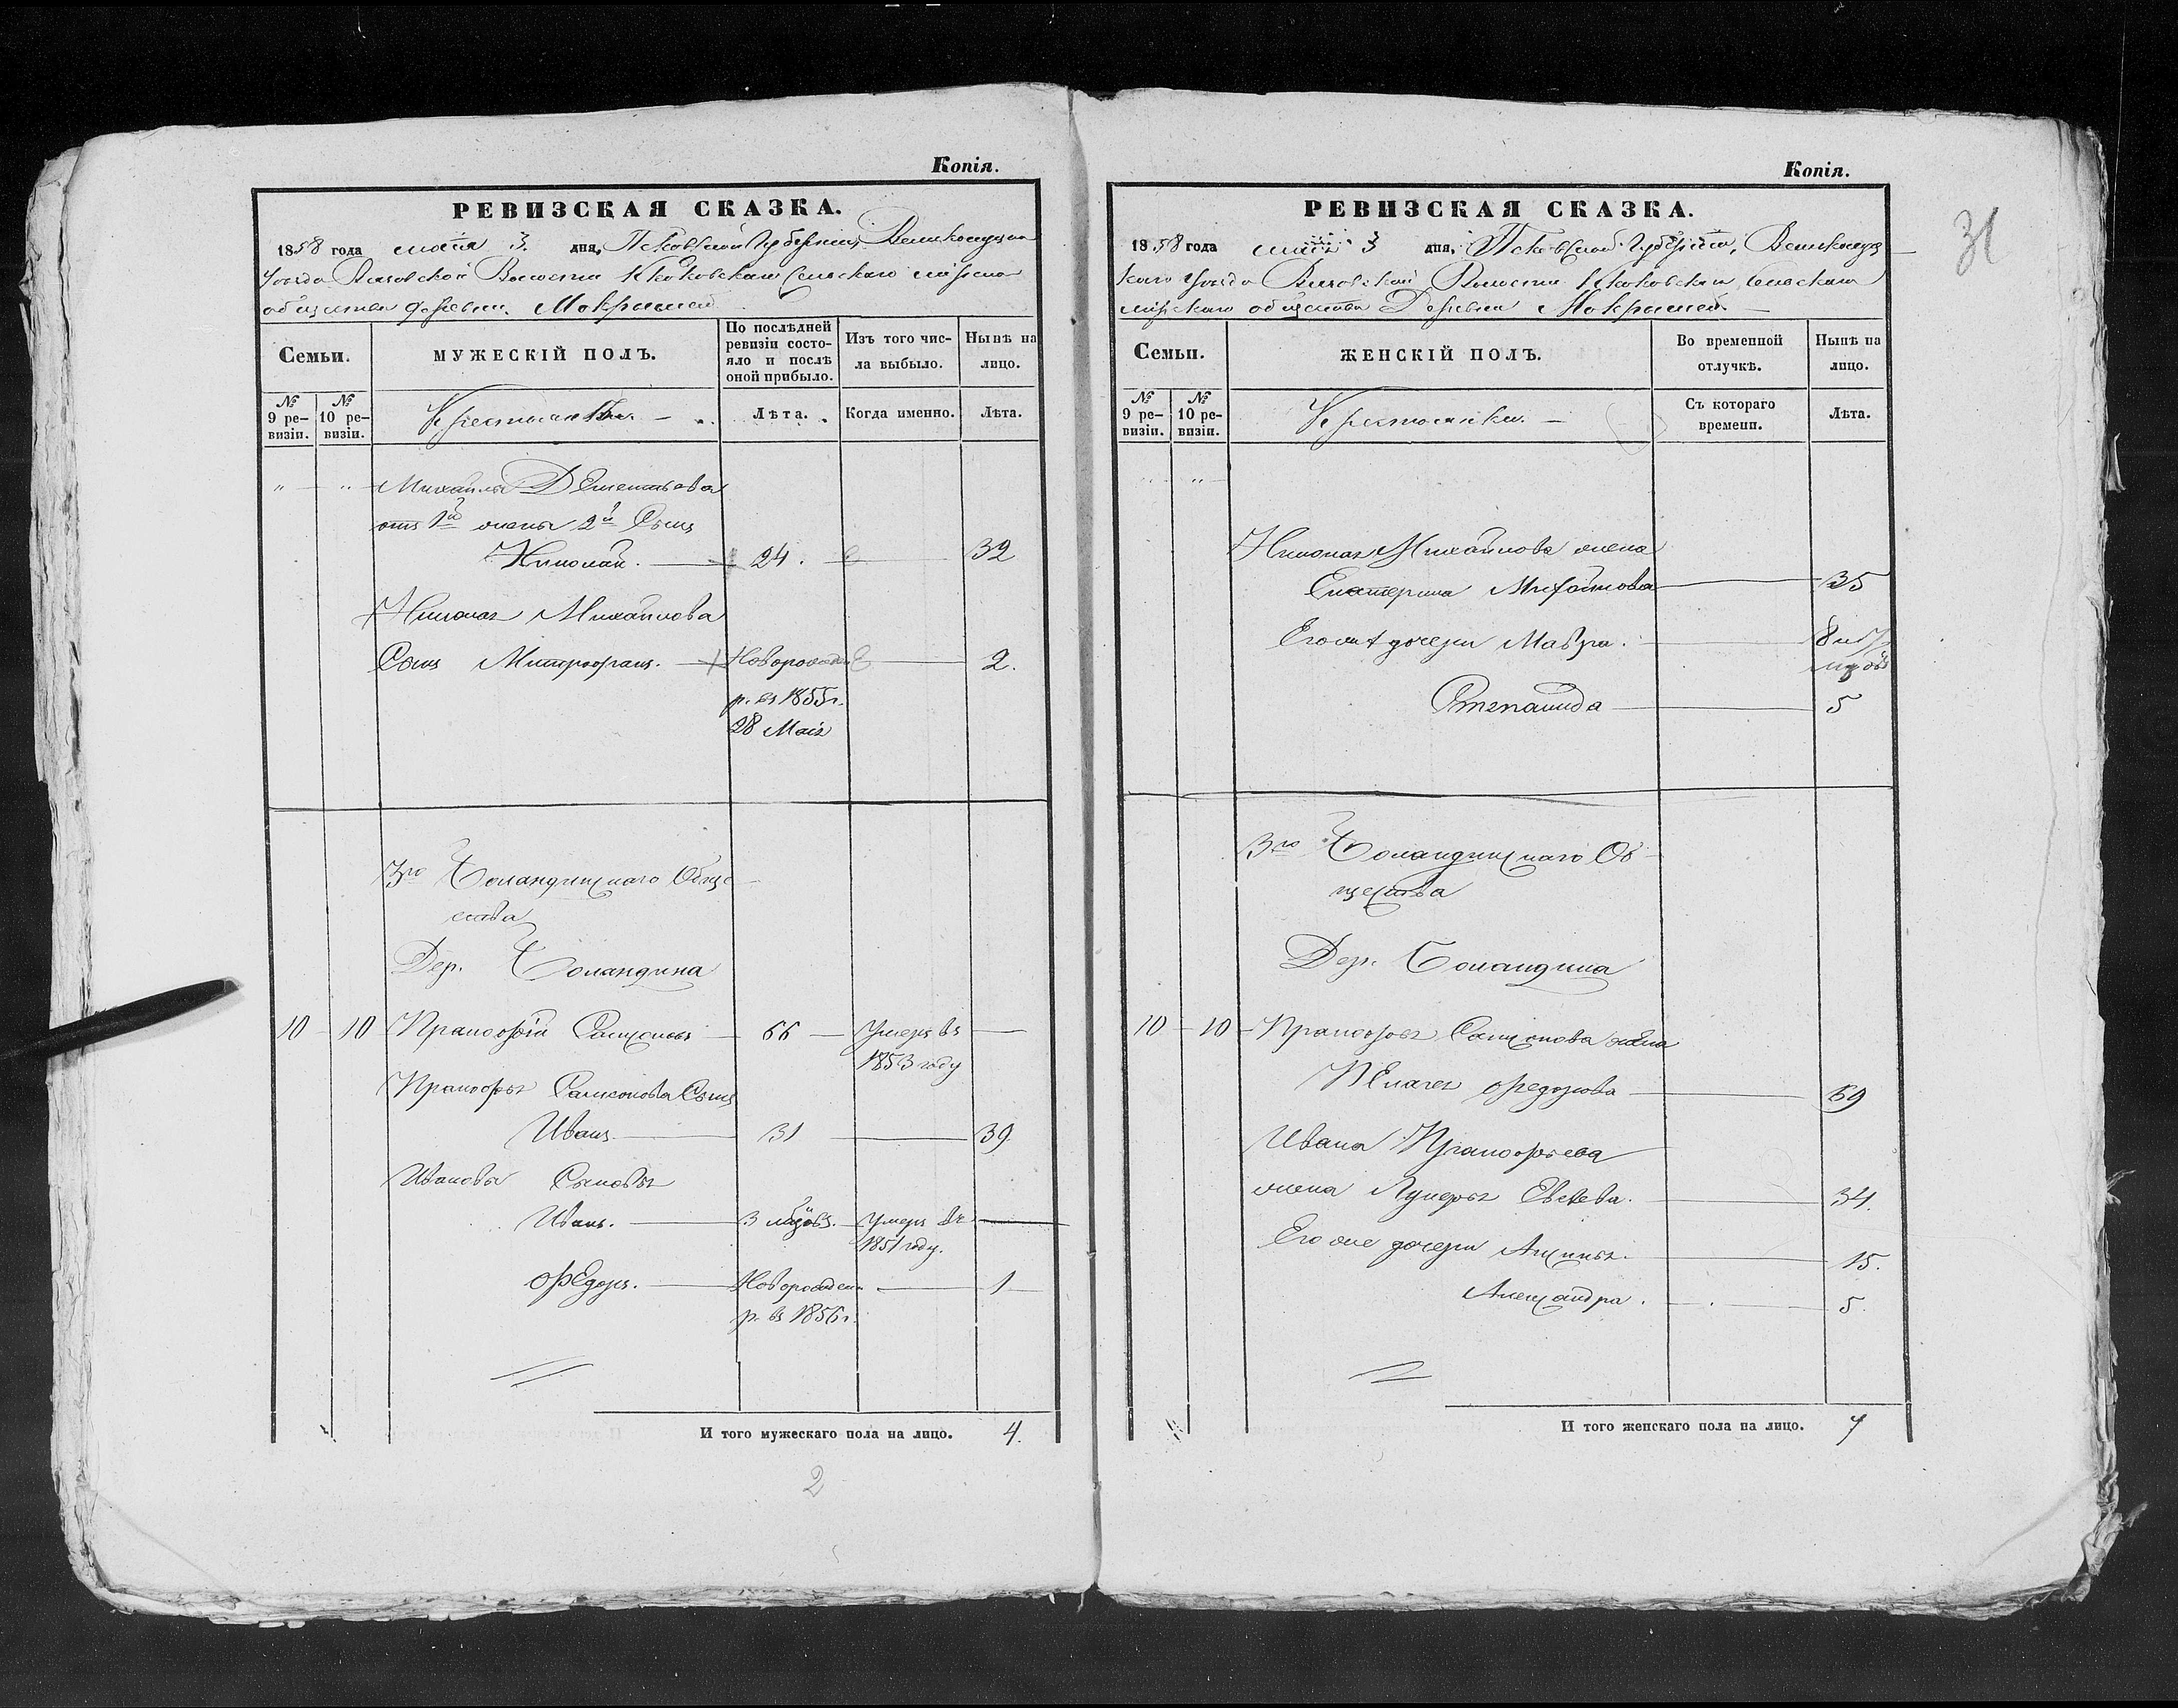 Копія.
РЕВИЗСКАЯ СКАЗКА.
1858 года мая 3 дня, Псковской Губерніи Великолуцка
Уѣзда Волости Сельскаго мірска
общества деревни Мокрышей
Семьи.
МУЖЕСКІЙ ПОЛЪ.
По послѣдней ревизіи состояло и послѣ оной прибыло.
Изъ того числа выбыло.
Нынѣ на лицо.
№ 9 ревизіи.
№ 10 ревизіи.
Крестьяне
Лѣта.
Когда именно.
Лѣта.
" " Михайлы Дементьева
отъ 1й жены 2й Сынъ
Николай. 24. 32
Николая Михайлова
Сынъ Митрофанъ. Новорожден 2.
р. въ 1855 г.
28 Маія
3гоБоландинскаго Обще-
ства
Дер. Боландина
10 10 Прапофій Самсоновъ 66 Умеръ въ
1853 году
Прапофья Самсонова Сынъ
Иванъ 31 39
Ивановы Сыновья
Иванъ. 3 мѣсяцовъ. Умеръ въ
1851 году.
Ѳедоръ. Новорожден 1
р. въ 1856 г.
И того мужескаго пола на лицо. 4.
2
Копія.
31
РЕВИЗСКАЯ СКАЗКА.
1858 года мая 3 дня, Псковской Губерніи, Великолуц-
каго Уѣзда Волости Сельскаго
мірскаго общества Деревни Мокрышей
Семьи.
ЖЕНСКІЙ ПОЛЪ.
Во временной отлучкѣ.
Нынѣ на лицо.
№ 9 ревизіи.
№ 10 ревизіи.
Крестьянки.
Съ котораго времени.
Лѣта.
" "
Николая Михайлова жена
Екатерина Михайлова 35
Его же дочери Мавра. 8 и 7
Степанида 5
3го Боландинскаго Об-
щества
Дер. Боландина
10 10 Прапофья Самсонова жена
Пелагея Ѳедорова 69
Ивана Прапофьева
жена Лукерья Евсеева. 34.
Его же дочери Аксинья. 15.
Александра. 5.
И того женскаго пола на лицо. 7